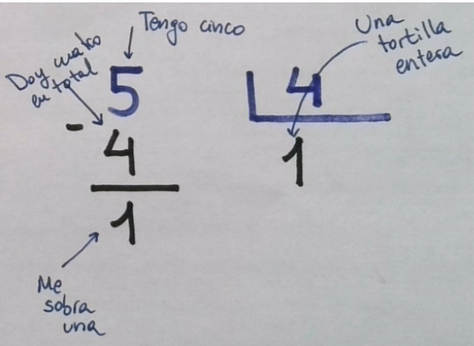 Tengo cinco
Doy cuatro
en total
5
- 4
1
Me
sobra
una
Una
tortilla
entera
4
1